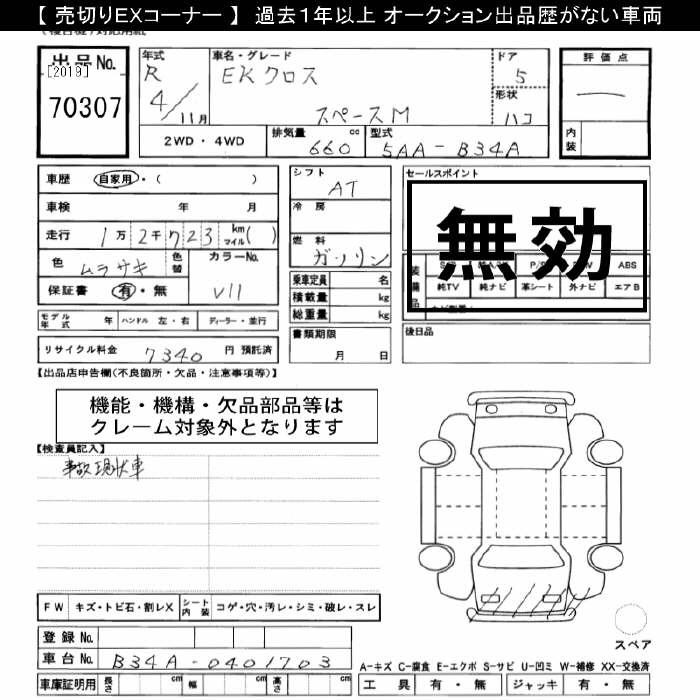 【 売切りEXコーナー 】 過去1年以上 オークション出品歴がない車両
出品 No.
[2019]
70307
年式
R
4/11月
車名・グレード
EKクロス
スペースM
ドア
5
形状
ハコ
評価点
内装
2WD・4WD
排気量
660
cc
型式
5AA-B34A
車歴 自家用・( )
車検 年 月
走行 1万2千723 km マイル( )
色 ムラサキ 色替
カラーNo.
V11
保証書 有・無
モデル年式 年 ハンドル 左・右 ディーラー・並行
リサイクル料金 7340 円 預託済
シフト
AT
冷房
燃料
ガソリン
乗車定員 名
積載量 kg
総重量 kg
書類期限
月 日
セールスポイント
無効
ABS
純TV 純ナビ 革シート 外ナビ エアB
後日品
【出品店申告欄(不良箇所・欠品・注意事項等)】
機能・機構・欠品部品等は
クレーム対象外となります
【検査員記入】
事故現状車
FW キズ・トビ石・割レX シート内装 コゲ・穴・汚レ・シミ・破レ・スレ
登録 No.
車台 No. B34A-0401703
車庫証明用 長さ cm 幅 cm 高さ cm
スペア
A-キズ C-腐食 E-エクボ S-サビ U-凹ミ W-補修 XX-交換済
工具 有・無 ジャッキ 有・無